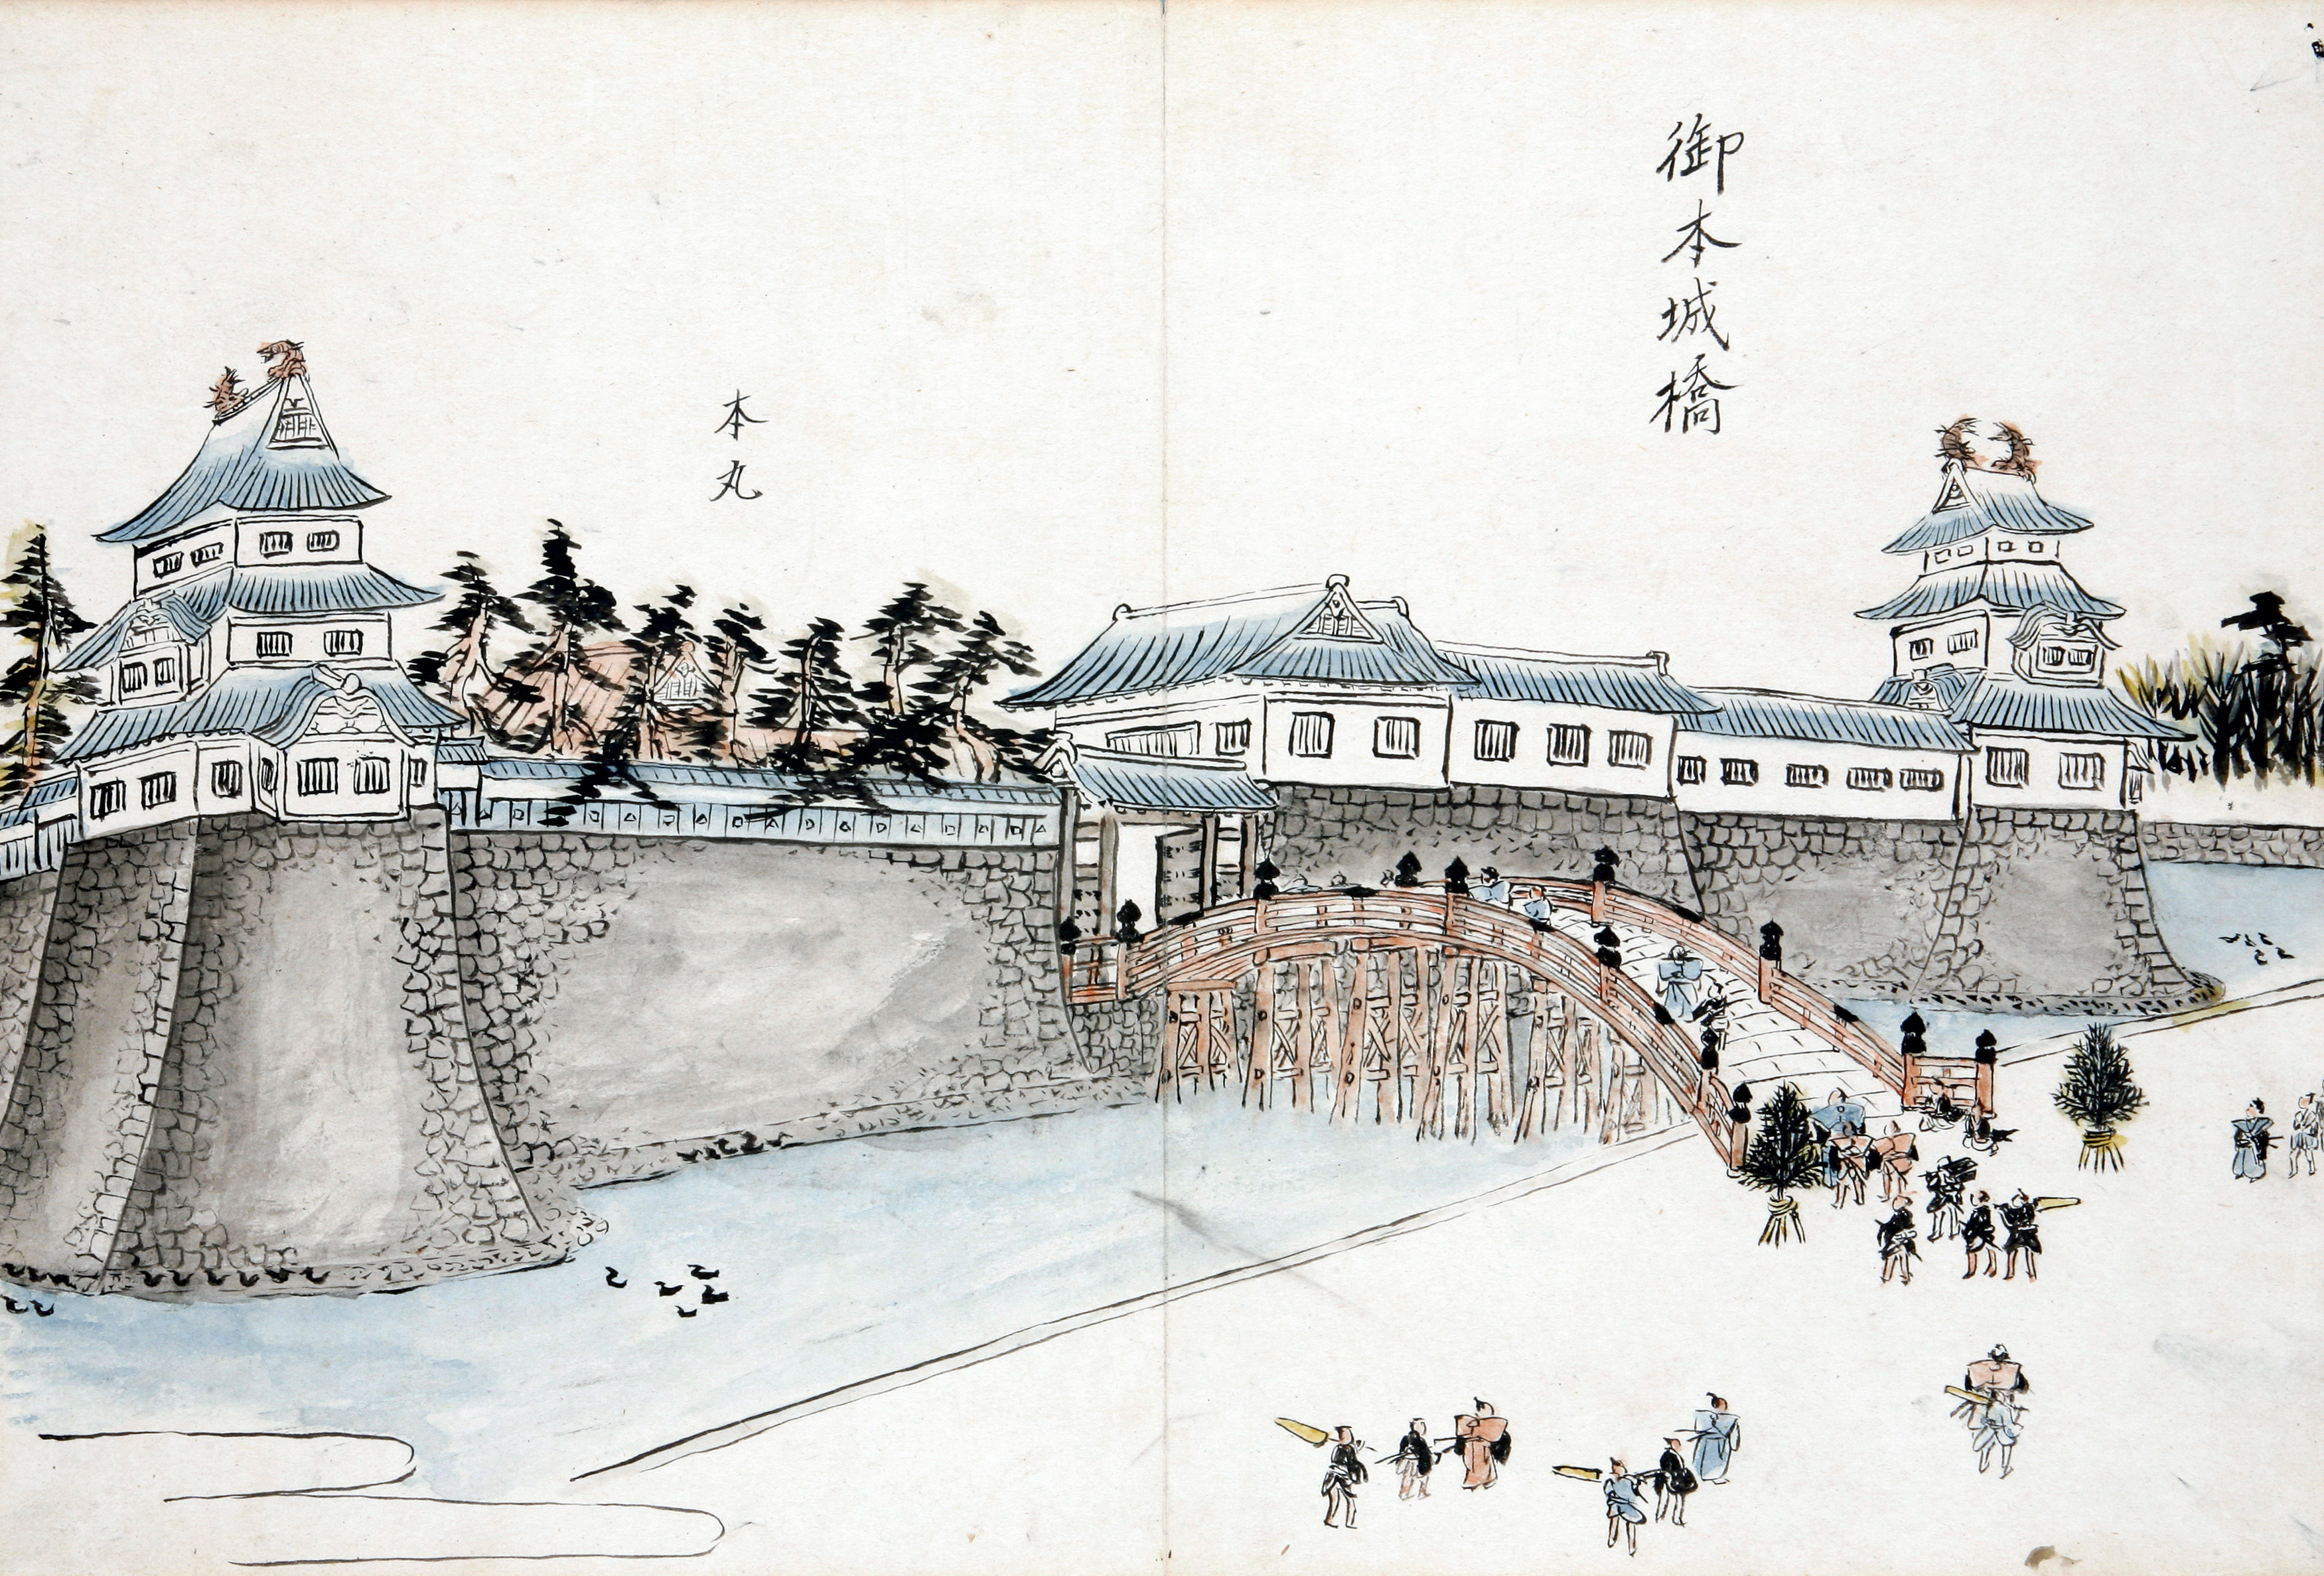 御本城橋
本丸